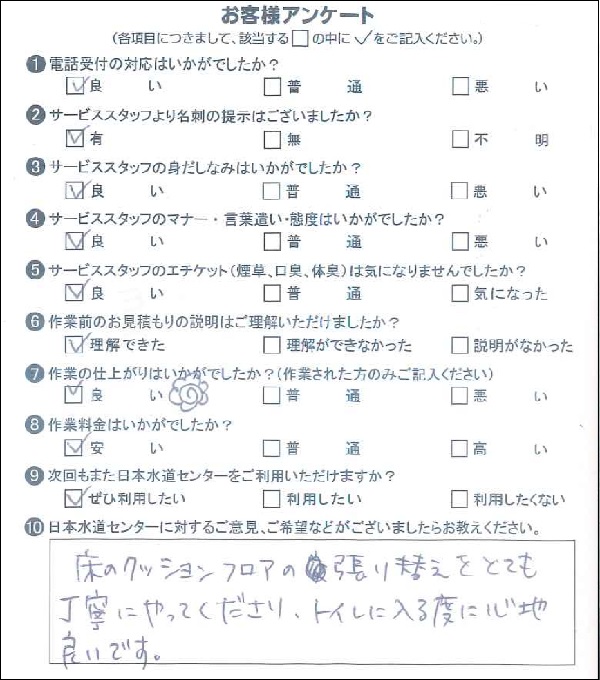 お客様アンケート
(各項目につきまして、該当する□の中に✓をご記入ください。)
❶電話受付の対応はいかがでしたか？
☑良い □普通 □悪い
❷サービススタッフより名刺の提示はございましたか？
☑有 □無 □不明
❸サービススタッフの身だしなみはいかがでしたか？
☑良い □普通 □悪い
❹サービススタッフのマナー・言葉遣い・態度はいかがでしたか？
☑良い □普通 □悪い
❺サービススタッフのエチケット(煙草、口臭、体臭)は気になりませんでしたか？
☑良い □普通 □気になった
❻作業前のお見積もりの説明はご理解いただけましたか？
☑理解できた □理解ができなかった □説明がなかった
❼作業の仕上がりはいかがでしたか？(作業された方のみご記入ください)
☑良い □普通 □悪い
❽作業料金はいかがでしたか？
☑安い □普通 □高い
❾次回もまた日本水道センターをご利用いただけますか？
☑ぜひ利用したい □利用したい □利用したくない
❿日本水道センターに対するご意見、ご希望などがございましたらお教えください。
床のクッションフロアの張り替えをとても
丁寧にやってくださり、トイレに入る度に心地
良いです。